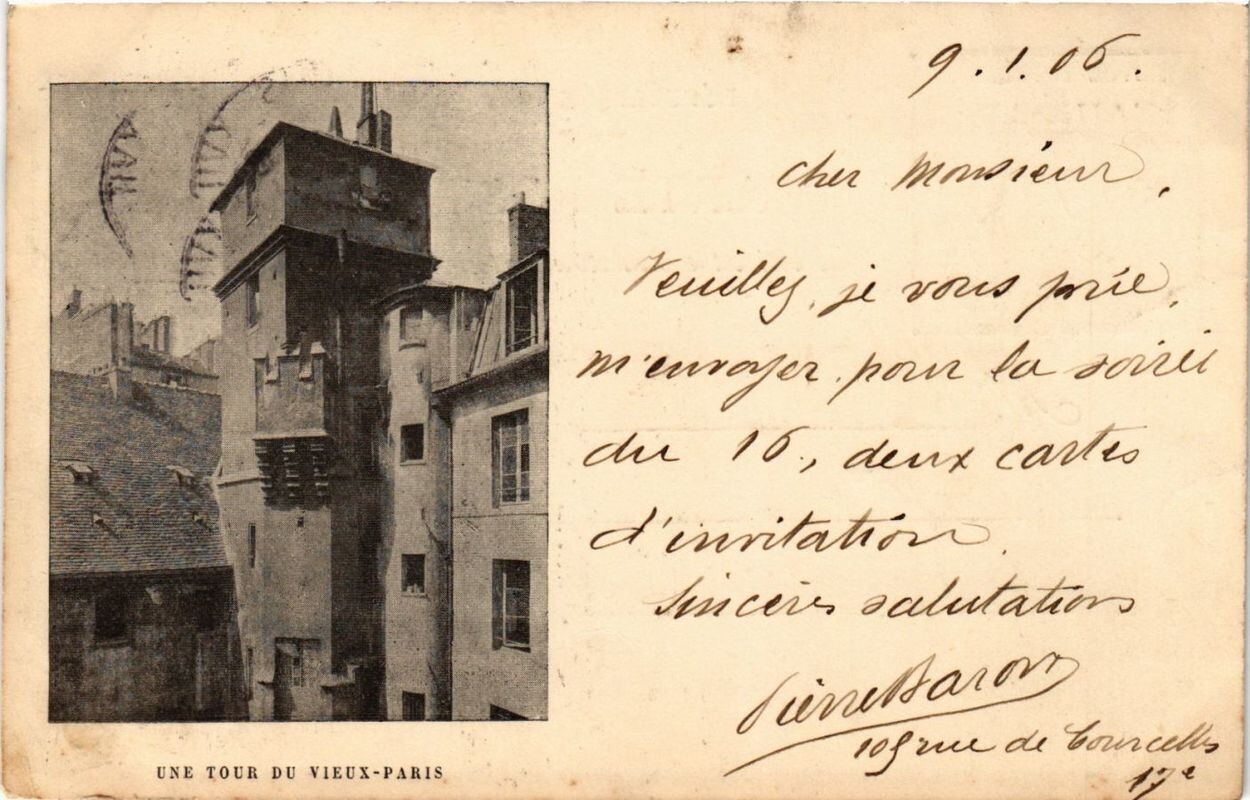 9.1.06.
cher Monsieur,
Veuillez, je vous prie,
m'envoyer, pour la soirée
du 16, deux cartes
d'invitation.
Sincères salutations
Pierre Baron
109 rue de Courcelles
17e
UNE TOUR DU VIEUX-PARIS